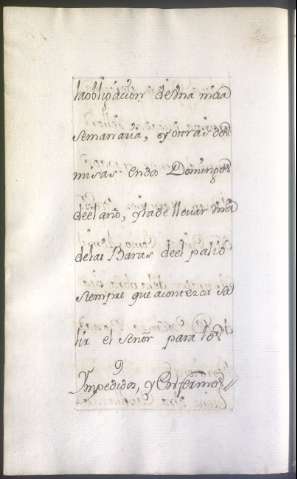 la obligacion de una misa
semanaria, y otras dos
misas en dos Domingos
de el año, y la de llevar una
de las Baras de el palio
siempre que acontezca sa
lir el Señor para los
Ympedidos, y Enfermos